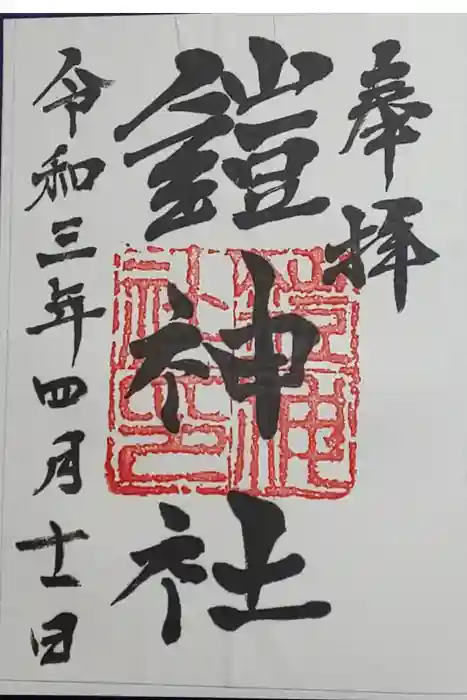 奉拝
鎧神社
鎧神社之印
令和三年四月十一日